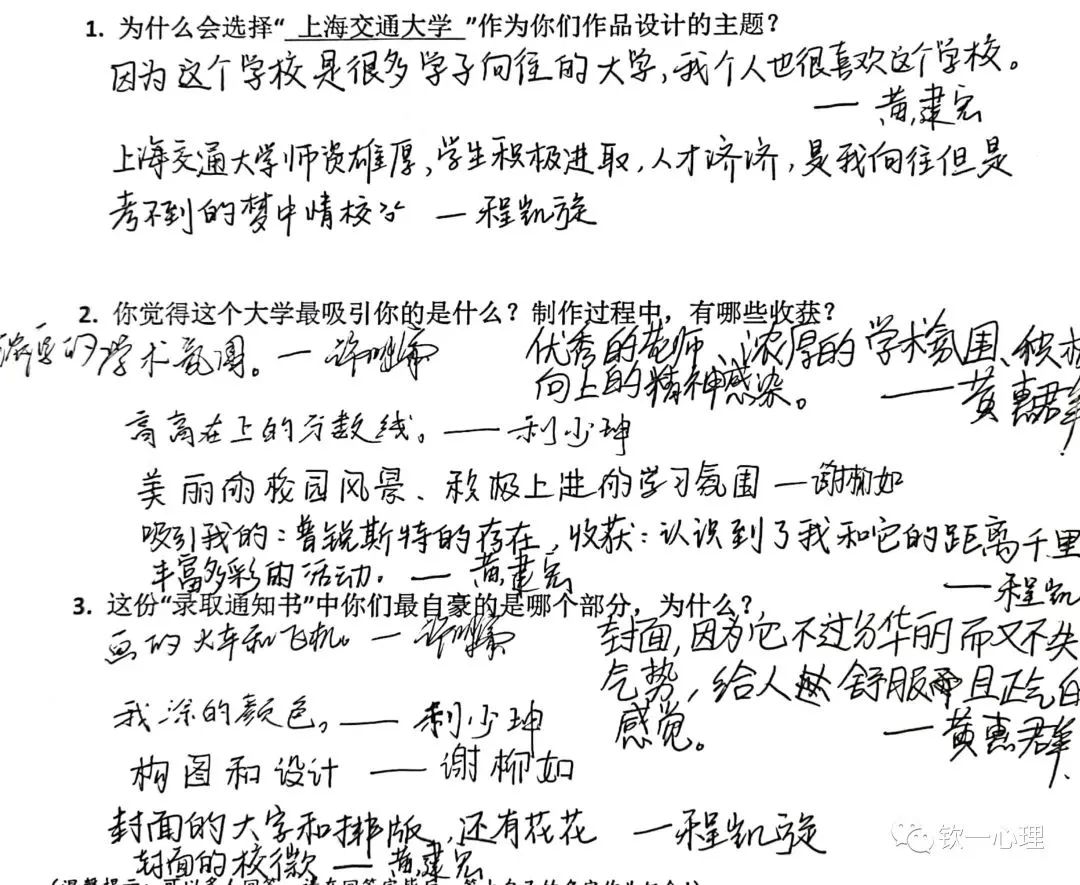 1. 为什么会选择“ 上海交通大学 ”作为你们作品设计的主题？
因为这个学校是很多学子向往的大学，我个人也很喜欢这个学校。
— 黄建宏
上海交通大学师资雄厚，学生积极进取，人才济济，是我向往但是
考不到的梦中情校 — 程凯旋
2. 你觉得这个大学最吸引你的是什么？制作过程中，有哪些收获？
浓厚的学术氛围。 — 许
优秀的老师、浓厚的学术氛围、积极
向上的精神感染。 — 黄惠群
高高在上的分数线。 — 利少珅
美丽的校园风景、积极上进的学习氛围 — 谢柳如
吸引我的：普锐斯特的存在，收获：认识到了我和它的距离千里
— 程凯
丰富多彩的活动。 — 黄建宏
3. 这份“录取通知书”中你们最自豪的是哪个部分，为什么？
画的火车和飞机。 — 许
封面，因为它不过分华丽而又不失
气势，给人舒服而且正气的
感觉。 — 黄惠群
我涂的颜色。 — 利少珅
构图和设计 — 谢柳如
封面的大字和排版，还有花花 — 程凯旋
封面的校徽 — 黄建宏
钦一心理